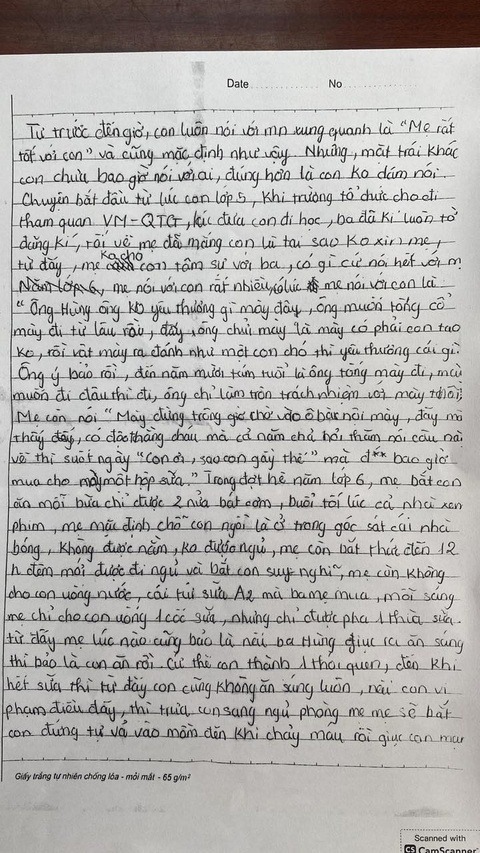 Date No
Từ trước đến giờ, con luôn nói với mn xung quanh là "Mẹ rất
tốt với con" và cũng mặc định như vậy. Nhưng, mặt trái khác
con chưa bao giờ nói với ai, đúng hơn là con ko dám nói.
Chuyện bắt đầu từ lúc con lớp 5, khi trường tổ chức cho đi
tham quan VM-QTG, lúc đưa con đi học, ba đã kí luôn tờ
đăng kí, rồi về mẹ đã mắng con là tại sao ko xin mẹ,
từ đấy, mẹ ko cho con tâm sự với ba, có gì cứ nói hết với m
Năm lớp 6, mẹ nói với con rất nhiều, mẹ nói với con là
"Ông Hùng ông ko yêu thương gì mày đâu, ông muốn tống cổ
mày đi từ lâu rồi, ông chửi mày là mày có phải con tao
ko, rồi vật mày ra đánh như một con chó thì yêu thương cái gì.
Ông ý bảo rồi, đến năm mười tám tuổi là ông tống mày đi, mày
muốn đi đâu thì đi, ông chỉ làm tròn trách nhiệm với mày thôi
Mẹ còn nói "Mày đừng trông chờ vào ô bà nội mày, đây mà
thấy đấy, có độc thằng cháu mà cả năm chả hỏi thăm nổi câu nào
về thì suốt ngày "con ơi, sao con gầy thế" mà đ** bao giờ
mua cho mày một hộp sữa." Trong đợt hè năm lớp 6, mẹ bắt con
ăn mỗi bữa chỉ được 2 nửa bát cơm, buổi tối lúc cả nhà xem
phim, mẹ mặc định chỗ con ngồi là ở trong góc sát cái nhà
bóng, không được nằm, ko được ngủ, mẹ còn bắt thức đến 12
h đêm mới được đi ngủ và bắt con suy nghĩ, mẹ còn không
cho con uống nước, cái túi sữa A2 mà ba mẹ mua, mỗi sáng
mẹ chỉ cho con uống 1 cốc sữa, nhưng chỉ được pha 1 thìa sữa
từ đấy mẹ lúc nào cũng bảo là nếu ba Hùng giục ra ăn sáng
thì bảo là con ăn rồi. Cứ thế con thành 1 thói quen, đến khi
hết sữa thì từ đấy con cũng không ăn sáng luôn, nếu con vi
phạm điều đấy, thì trưa con sang ngủ phòng mẹ mẹ sẽ bắt
con đứng tự vả vào mồm đến khi chảy máu rồi giục con mau
Giấy trắng tự nhiên chống lóa - mỏi mắt - 65 g/m²
Scanned with
CS CamScanner